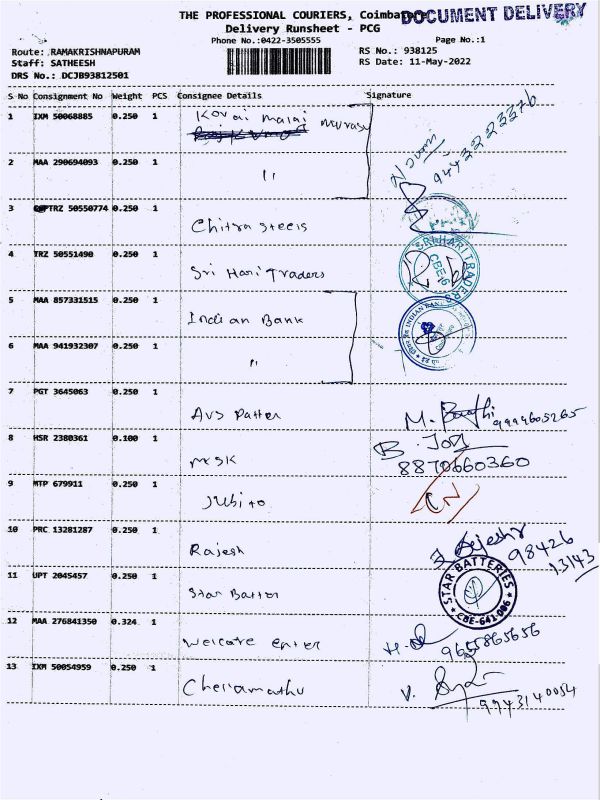 THE PROFESSIONAL COURIERS, Coimbatore
DOCUMENT DELIVERY
Delivery Runsheet - PCG
Phone No.:0422-3505555 Page No.:1
Route: RAMAKRISHNAPURAM RS No.: 938125
Staff: SATHEESH RS Date: 11-May-2022
DRS No.: DCJB93812501
S No Consignment No Weight PCS Consignee Details Signature
1 IXM 50068885 0.250 1 Kovai malai murasu
2 MAA 290694093 0.250 1 "
9432223376
3 TRZ 50550774 0.250 1 Chitra steels
4 TRZ 50551490 0.250 1 Sri Hari Traders
SRI HARI TRADERS CBE-6
5 MAA 857331515 0.250 1 Indian Bank
INDIAN BANK
6 MAA 941932307 0.250 1 "
7 PGT 3645063 0.250 1 AVS Patter
M. 9994605265
8 HSR 2380361 0.100 1 MKSK
B. Joy
8870660360
9 MTP 679911 0.250 1 Jubito
10 PRC 13281287 0.250 1 Rajesh
Rajeshr 98426
13143
11 UPT 2045457 0.250 1 Star Batter
STAR BATTERIES CBE-641 006
12 MAA 276841350 0.324 1 Welcare enter
9655865656
13 IXM 50054959 0.250 1 Chellamuthu
V. 9943140054